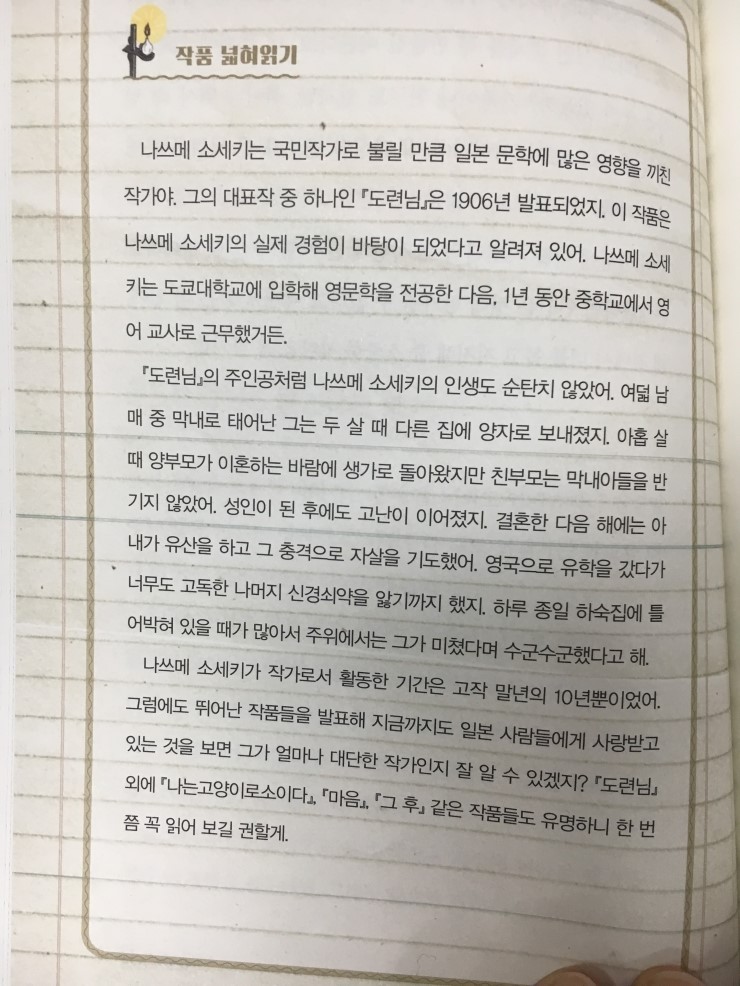 작품 넓혀읽기
나쓰메 소세키는 국민작가로 불릴 만큼 일본 문학에 많은 영향을 끼친
작가야. 그의 대표작 중 하나인 『도련님』은 1906년 발표되었지. 이 작품은
나쓰메 소세키의 실제 경험이 바탕이 되었다고 알려져 있어. 나쓰메 소세
키는 도쿄대학교에 입학해 영문학을 전공한 다음, 1년 동안 중학교에서 영
어 교사로 근무했거든.
『도련님』의 주인공처럼 나쓰메 소세키의 인생도 순탄치 않았어. 여덟 남
매 중 막내로 태어난 그는 두 살 때 다른 집에 양자로 보내졌지. 아홉 살
때 양부모가 이혼하는 바람에 생가로 돌아왔지만 친부모는 막내아들을 반
기지 않았어. 성인이 된 후에도 고난이 이어졌지. 결혼한 다음 해에는 아
내가 유산을 하고 그 충격으로 자살을 기도했어. 영국으로 유학을 갔다가
너무도 고독한 나머지 신경쇠약을 앓기까지 했지. 하루 종일 하숙집에 틀
어박혀 있을 때가 많아서 주위에서는 그가 미쳤다며 수군수군했다고 해.
나쓰메 소세키가 작가로서 활동한 기간은 고작 말년의 10년뿐이었어.
그럼에도 뛰어난 작품들을 발표해 지금까지도 일본 사람들에게 사랑받고
있는 것을 보면 그가 얼마나 대단한 작가인지 잘 알 수 있겠지? 『도련님』
외에 『나는고양이로소이다』, 『마음』, 『그 후』 같은 작품들도 유명하니 한 번
쯤 꼭 읽어 보길 권할게.